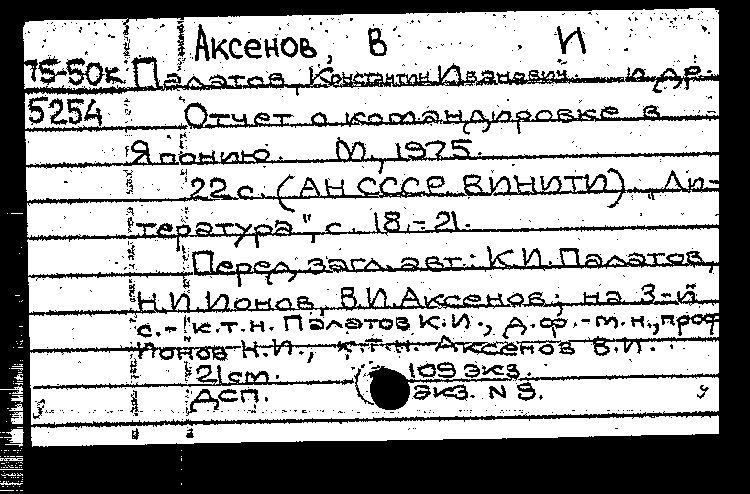 Аксенов, В И
75-50к Палатов, Константин Иванович и др.
5254 Отчет о командировке в
Японию. М., 1975.
22 с. (АН СССР ВИНИТИ) „Ли-
тература", с. 18.-21.
Перед загл. авт.: К.И.Палатов,
Н.И.Ионов, В.И.Аксенов; на 3-й
с.- к.т.н. Палатов К.И., д.ф.-м.н., проф
Ионов Н.И., к.т.н. Аксенов В.И.
21 см. 109 экз.
ДСП. экз. N 9.